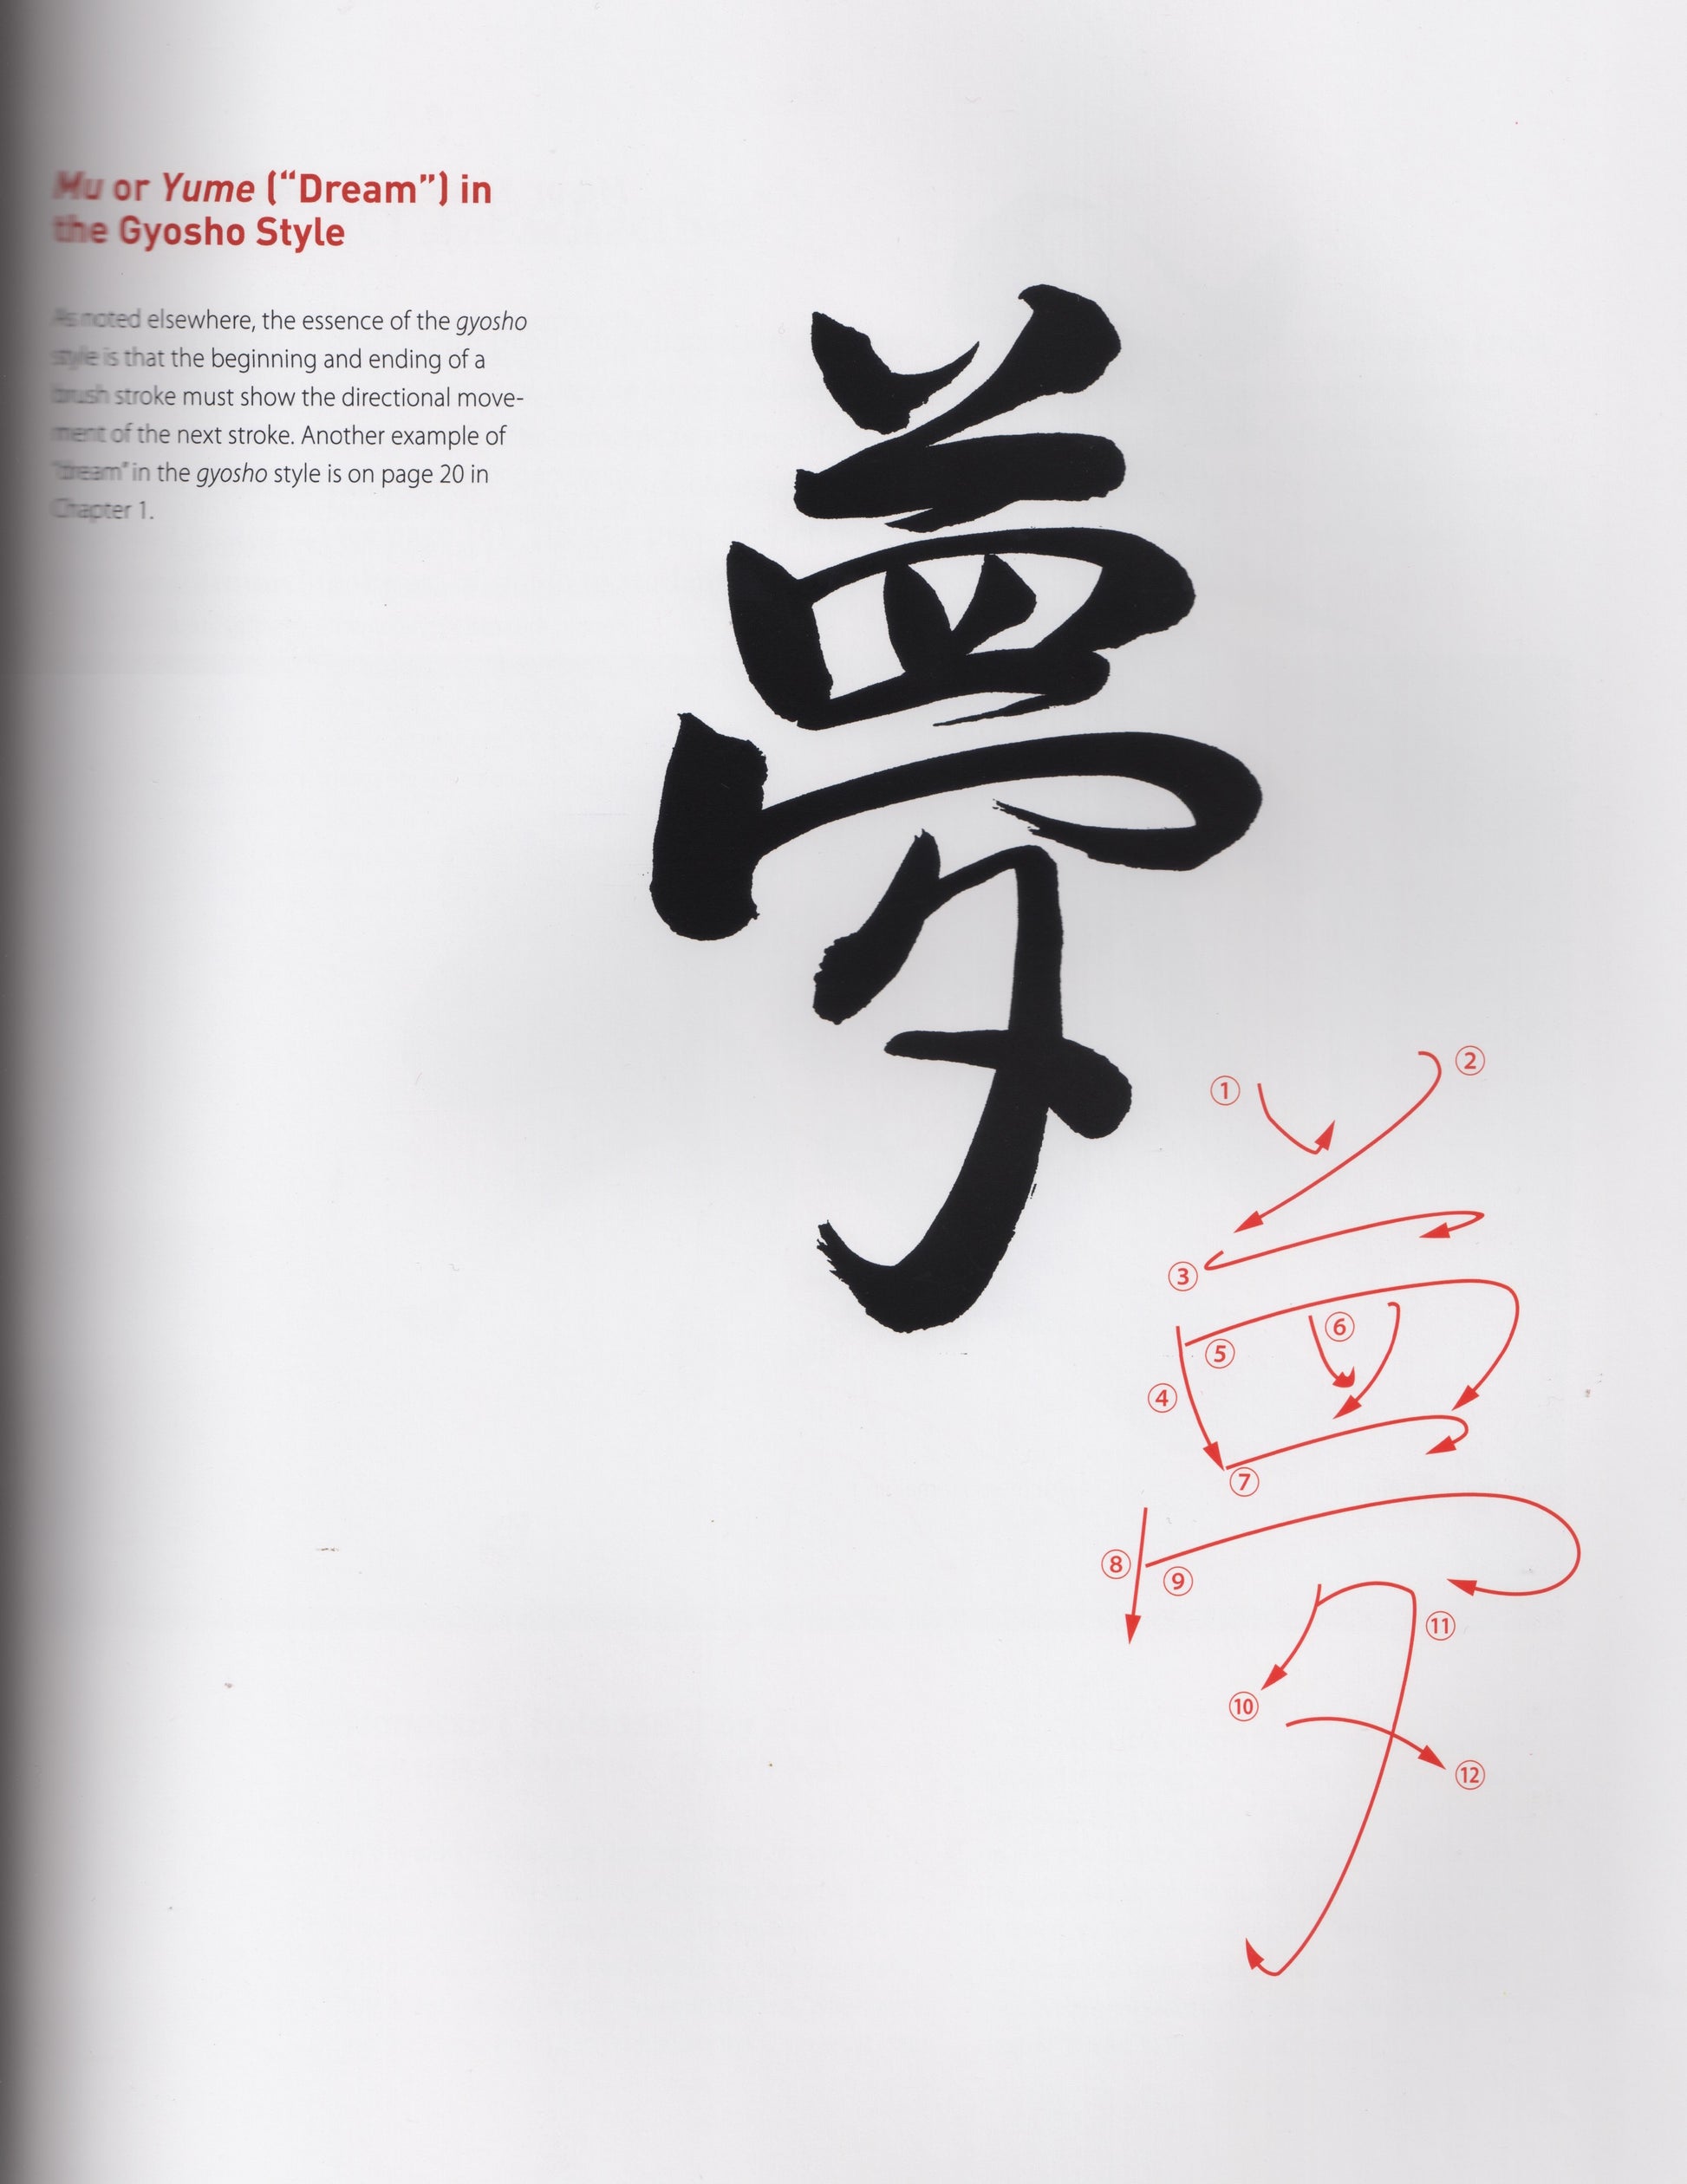 Mu or Yume (“Dream”) in
the Gyosho Style
As noted elsewhere, the essence of the gyosho
style is that the beginning and ending of a
brush stroke must show the directional move-
ment of the next stroke. Another example of
“dream” in the gyosho style is on page 20 in
Chapter 1.
夢
①
②
③
④
⑤
⑥
⑦
⑧
⑨
⑩
⑪
⑫